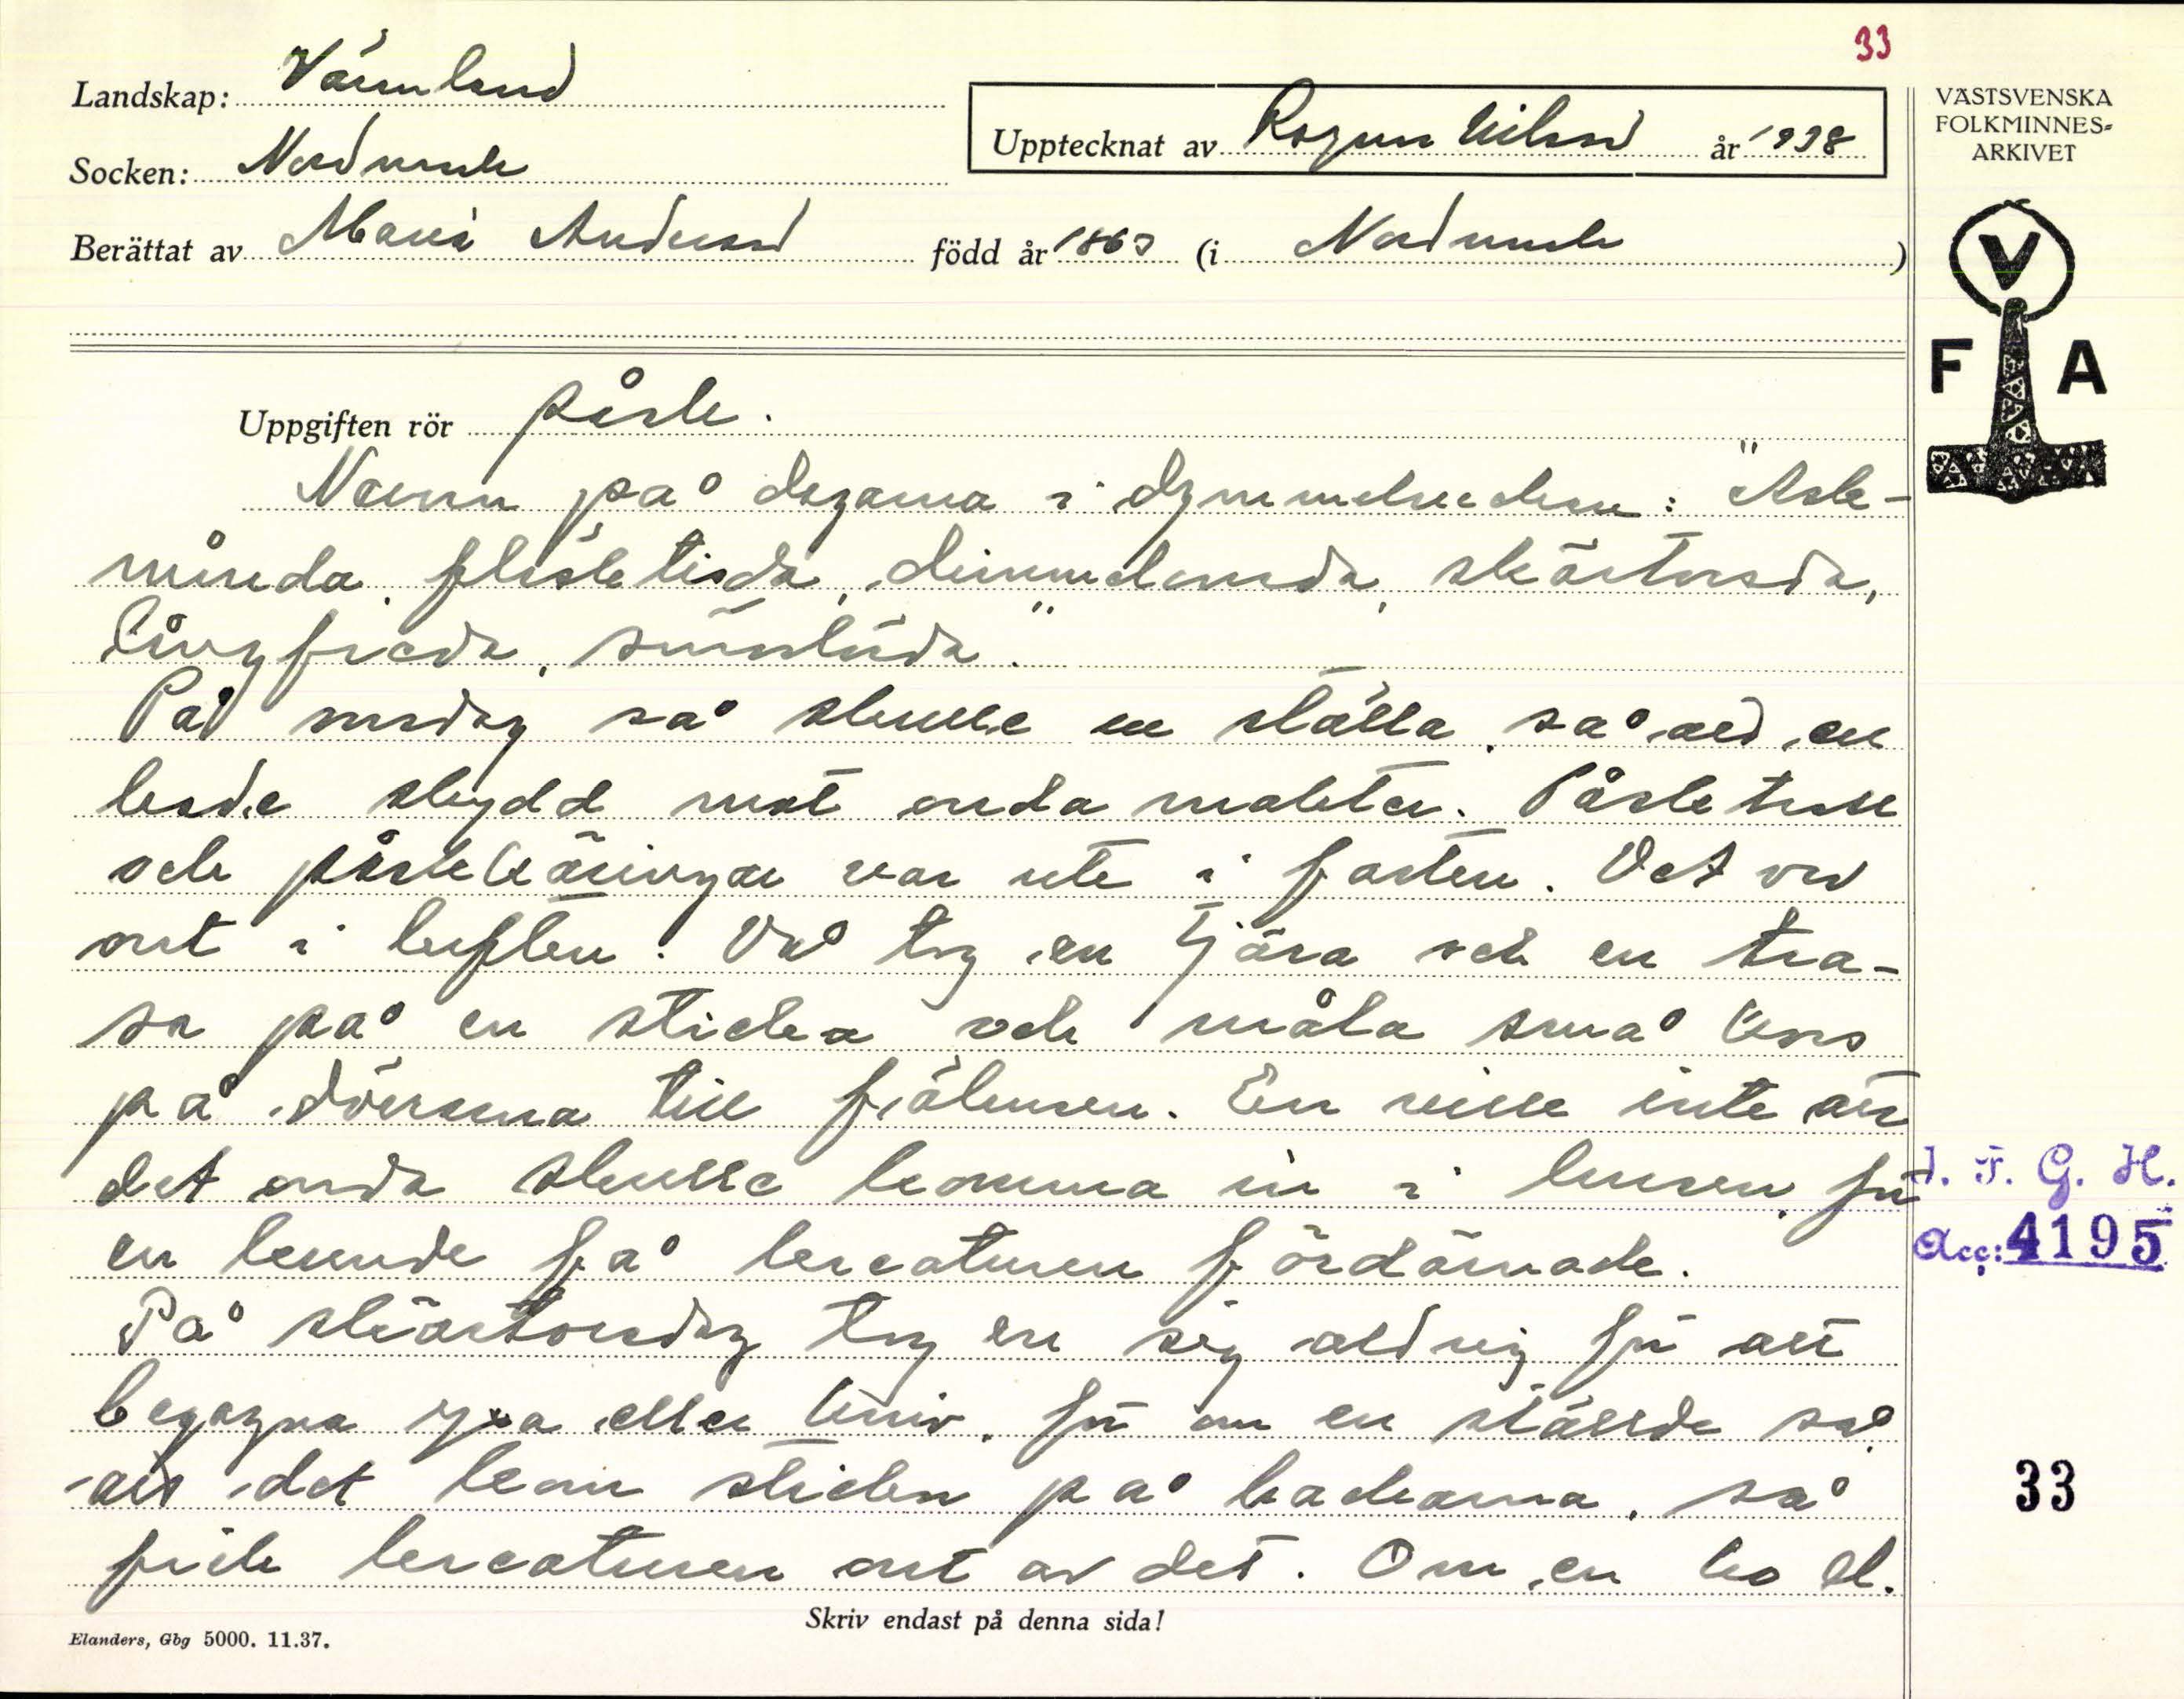 33
Landskap: Värmland
Upptecknat av Ragnar Nilsson år 1938
VÄSTSVENSKA
FOLKMINNES=
ARKIVET
Socken: Nordmark
Berättat av Maria Anderson född år 1863 (i Nordmark )
V
F A
Uppgiften rör påsk.
Namn på dagarna i dymmelveckan: "Aske-
månda, flåsketisda, dimmelonsda, skärtorsda,
långfreda, påsk
På onsdag så skulle en ställa så att en
hade skydd mot onda makter. Påsktroll
och påskkäringar var ute i farten. Det var
ont i luften. Då tog en tjära och en tra-
sa på en sticka och måla små kors
på dörrarna till fjölsena. En ville inte att
det onda skulle komma in i husen, för
en kunde få kreaturen fördärvade.
På skärtorsdag tog en sig aldrig för att
begagna yxa eller kniv, för om en ställde så
att det kom sticken på backarna, så
fick kreaturen ont av det. Om en ko el.
I. F. G. H.
Acc: 4195
33
Skriv endast på denna sida!
Elanders, Gbg 5000. 11.37.